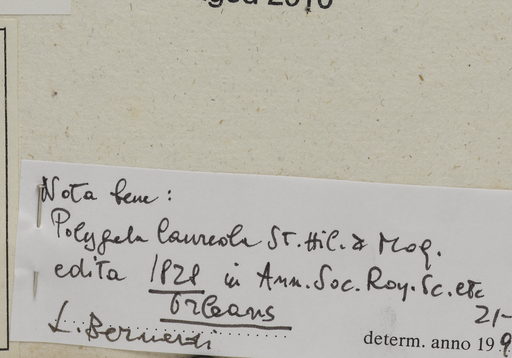 2010
Nota bene:
Polygala laureola St. Hil. & Moq.
edita 1828 in Ann. Soc. Roy. Sc. etc
Orleans
21-
L. Bernardi
determ. anno 199